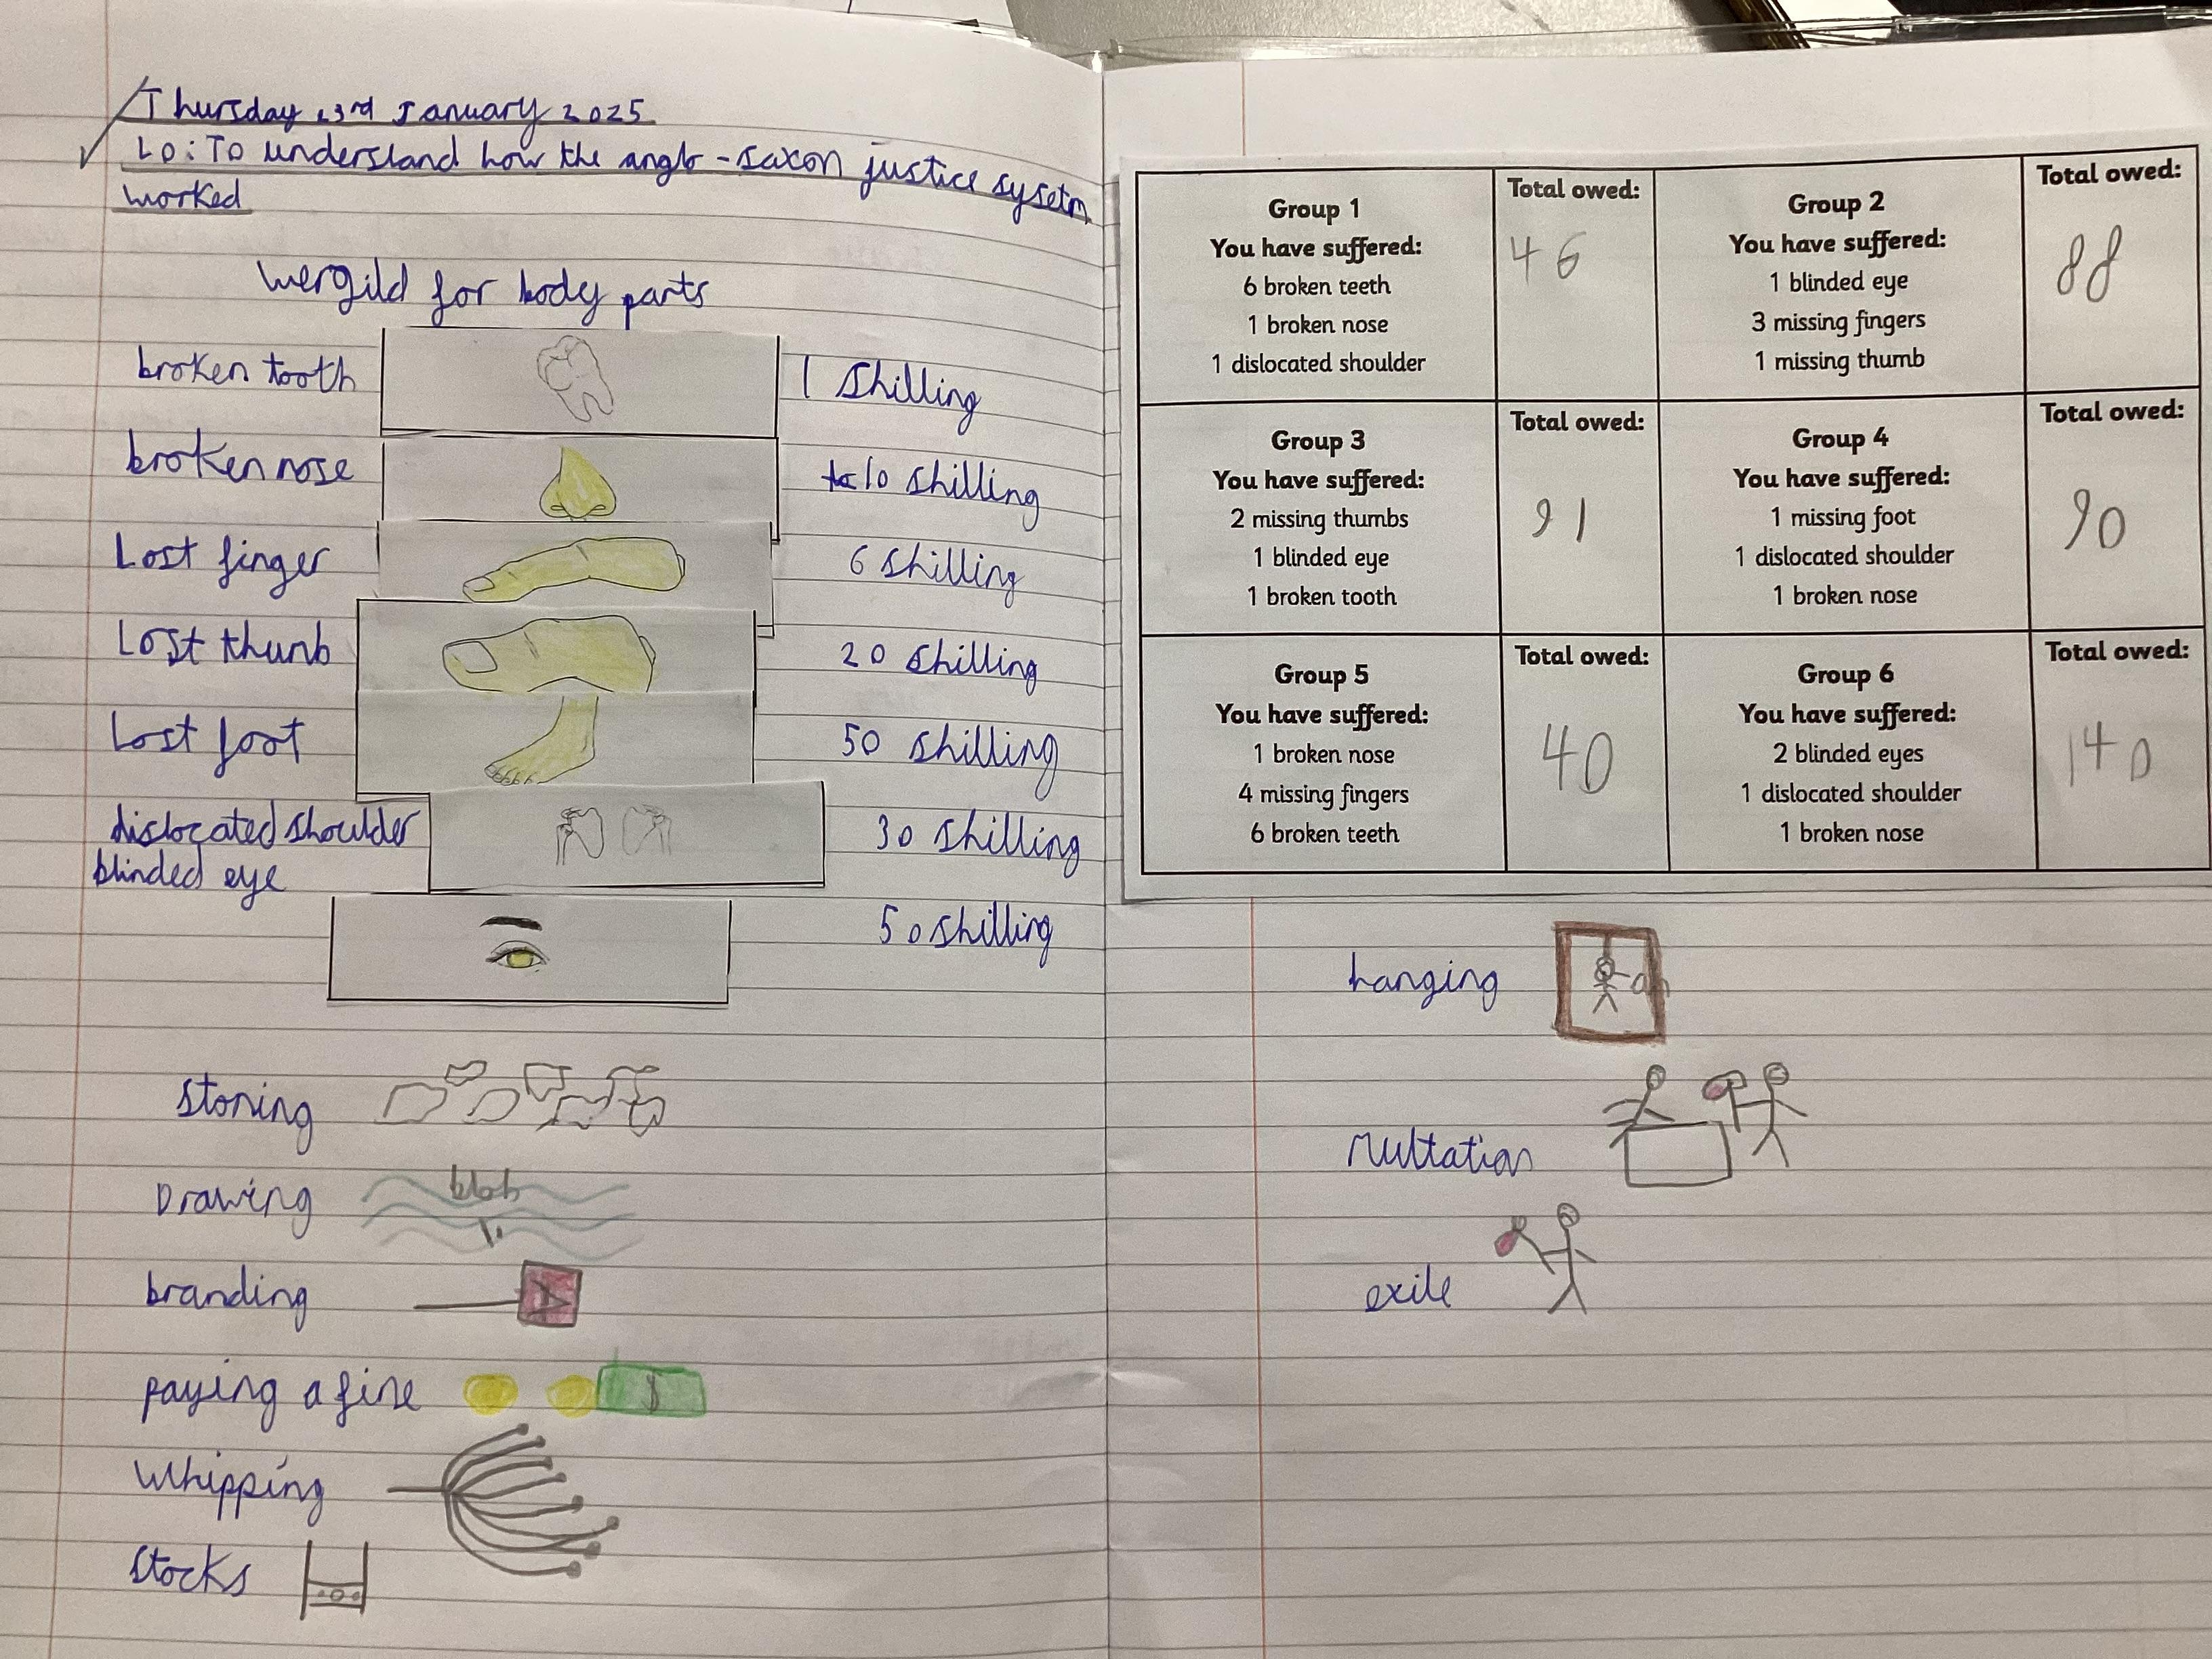 Thursday 23rd January 2025
LO: To understand how the anglo-saxon justice sysetm
worked
wergild for body parts
broken tooth
1 Shilling
broken nose
10 shilling
Lost finger
6 shilling
Lost thunb
20 shilling
Lost foot
50 shilling
dislocated shoulder
30 shilling
blinded eye
50 shilling
stoning
Drawing
blob
branding
paying a fine
$
Whipping
Stocks
Group 1
You have suffered:
6 broken teeth
1 broken nose
1 dislocated shoulder
Total owed:
46
Group 2
You have suffered:
1 blinded eye
3 missing fingers
1 missing thumb
Total owed:
88
Group 3
You have suffered:
2 missing thumbs
1 blinded eye
1 broken tooth
Total owed:
91
Group 4
You have suffered:
1 missing foot
1 dislocated shoulder
1 broken nose
Total owed:
90
Group 5
You have suffered:
1 broken nose
4 missing fingers
6 broken teeth
Total owed:
40
Group 6
You have suffered:
2 blinded eyes
1 dislocated shoulder
1 broken nose
Total owed:
140
hanging
exile